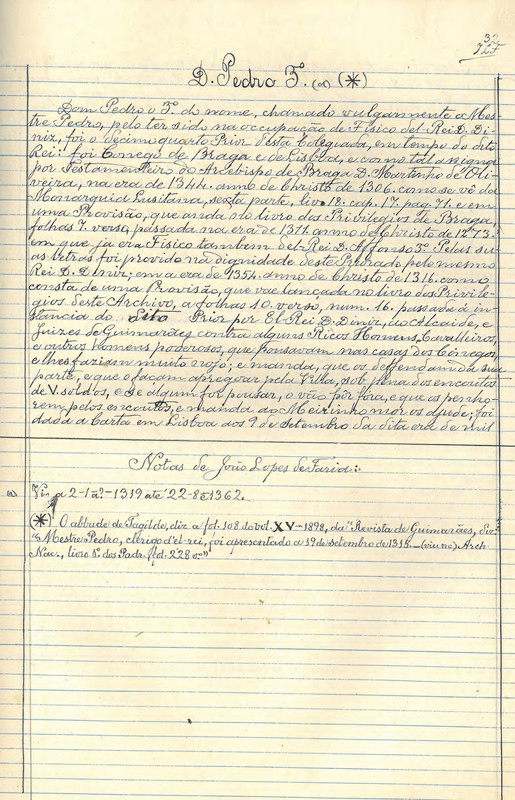 32
D. Pedro 3º. (a) (*)
Dom Pedro o 3º. do nome, chamado vulgarmente o Mes-
tre Pedro, pelo ter sido na occupação de Fisico del-Rei D. Di-
niz, foi o decimo quarto Prior desta Colegiada, em tempo do dito
Rei: foi Conego de Braga e de Lisboa, e como tal assigna
por Testamenteiro do Arcebispo de Braga D. Martinho de Oli-
veira, na era de 1344. anno de Christo de 1306. como se vê da
Monarquia Lusitana, sexta parte, liv. 18. cap. 17. pag. 71. e em
uma Provisão, que anda no livro dos Privilegios de Braga,
folhas 7. verso, passada na era de 1311. anno de Christo de 1273.
em que já era Fisico tambem del-Rei D. Affonso 3º. Pelas su-
as letras foi provido na dignidade deste Priorado pelo mesmo
Rei D. Diniz; em a era de 1354. anno de Christo de 1316. como
consta de uma Provisão, que vae lançada no livro dos Privile-
gios deste Archivo, a folhas 10. verso, num. 16. passada á in-
stancia do dito Prior por El-Rei D. Diniz, ao Alcaide, e
Juizes de Guimarães contra alguns Ricos Homens, Cavalleiros,
e outros homens poderosos, que pousavam nas casas dos Cónegos,
e lhes faziam muito nojo; e manda, que os deffendam da sua
parte, e que o façam apregoar pela Villa, sob pena dos encoutos
de V. soldos, e se algum for pousar, o vão pôr fóra, e que os penho-
rem pelos encoutos, e manda ao Meirinho mór os ajude; foi
dada a Carta em Lisboa aos 9 de Setembro da dita era de mil
Notas de João Lopes de Faria:
(a) 2-1º-1319 até 22-8º-1362.
(*) O abbade de Tagilde, diz a fol. 108 do vol. XV-1898, da "Revista de Guimarães, diz:
"Mestre Pedro, clerigo d'el-rei, foi apresentado a 19 de setembro de 1315. (viu no) Arch.
Nac., livro 1º. de Padr. fol. 228 vº"